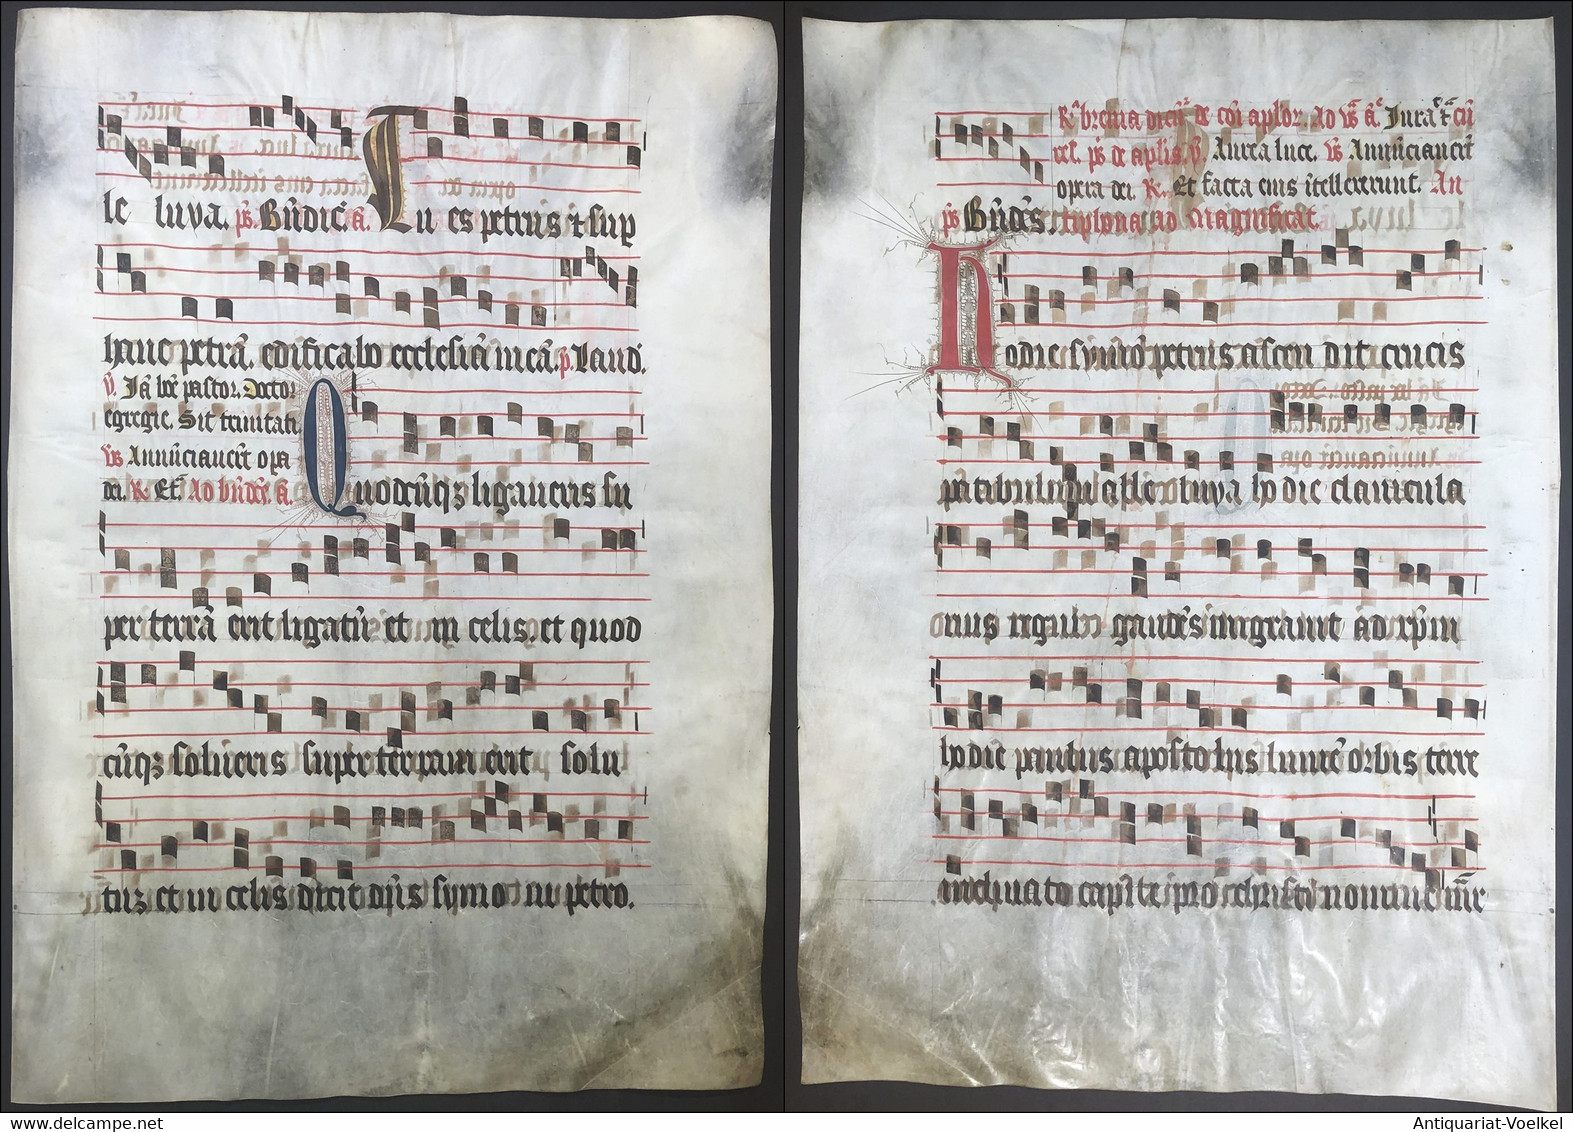 le luva. ps. Bn̄dic̄. a. Tu es petrus ⁊ sup
hanc petrā. edificabo ecclesiā meā. p. Laud.
v̄. Jā bōe pastor. Doctor
egregie. Sit trinitati.
vs Annūciauerūt opa
dei. R. Et. Ad bn̄dc̄. a. Quodcūqꝫ ligaueris su
per terrā erit ligatū et in celis. et quod
cūqꝫ solueris super terram erit solu
tuꝫ et in celis dicit dn̄s symo ni petro.
R̄ brevia dicūt de cōi aplor. Ad vs̄ a. Jurat̄ cū
rel. ps de aplis. v. Aurea luce. vs Annūciauerūt
opera dei. R. Et facta eius ītellexerunt. An
ps Bn̄dc̄s. tiphona ad Magnificat.
Hodie symō petrus ascen dit crucis
patibulum alle luya ho die clauicula
rius regni gaudēs migrauit ad xpm
hodie paulus aposto lus lumē orbis terre
inclinato capite pro christi nomine mr̄
Antiquariat-Voelkel